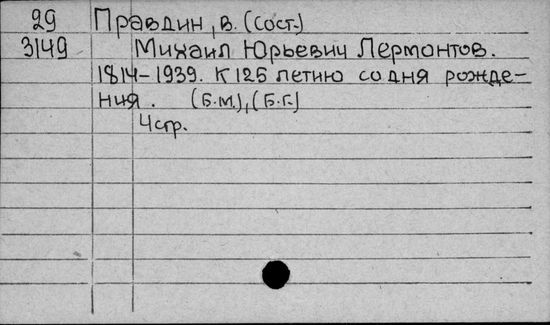 29 Правдин, В. (сост.)
3149 Михаил Юрьевич Лермонтов.
1814-1939. К 125 летию со дня рожде-
ния. (Б.М.), (Б.Г.)
4 стр.